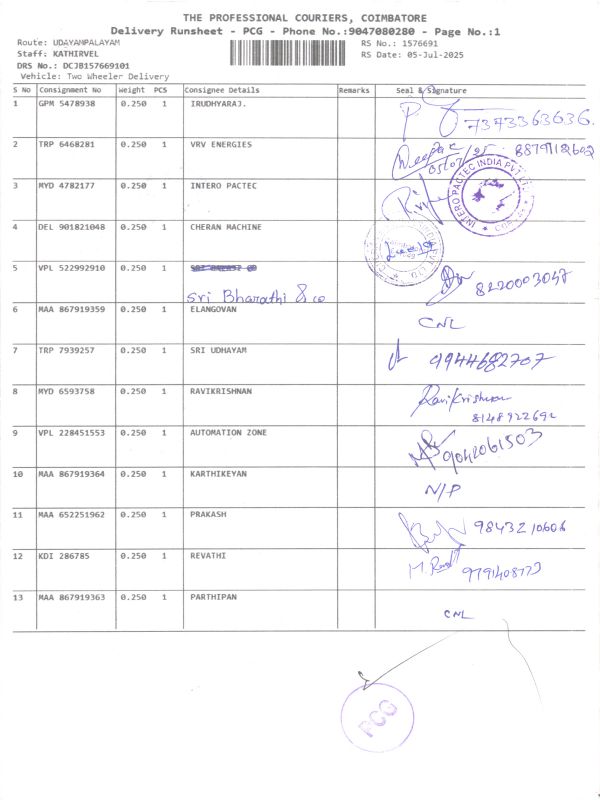 THE PROFESSIONAL COURIERS, COIMBATORE
Delivery Runsheet - PCG - Phone No.:9047080280 - Page No.:1
Route: UDAYAMPALAYAM RS No.: 1576691
Staff: KATHIRVEL RS Date: 05-Jul-2025
DRS No.: DCJB157669101
Vehicle: Two Wheeler Delivery
S No Consignment No Weight PCS Consignee Details Remarks Seal & Signature
1 GPM 5478938 0.250 1 IRUDHYARAJ.
7373363636.
2 TRP 6468281 0.250 1 VRV ENERGIES
Deepak 8879112602
05/07/25
3 MYD 4782177 0.250 1 INTERO PACTEC
INTERO PACTEC INDIA PVT LTD
4 DEL 901821048 0.250 1 CHERAN MACHINE
5 VPL 522992910 0.250 1
Sri Bharathi & co 8220003047
6 MAA 867919359 0.250 1 ELANGOVAN
CNL
7 TRP 7939257 0.250 1 SRI UDHAYAM
9944682707
8 MYD 6593758 0.250 1 RAVIKRISHNAN
Ravikrishnan
8148922692
9 VPL 228451553 0.250 1 AUTOMATION ZONE
9042061503
10 MAA 867919364 0.250 1 KARTHIKEYAN
N/P
11 MAA 652251962 0.250 1 PRAKASH
9843210606
12 KDI 286785 0.250 1 REVATHI
9791408773
13 MAA 867919363 0.250 1 PARTHIPAN
CNL
PCG